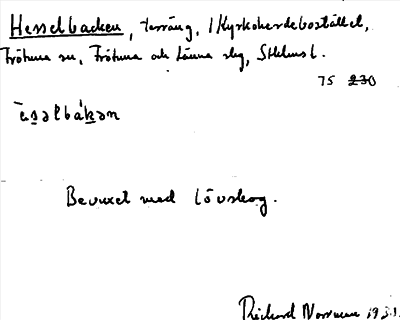 Hesselbacken, terräng, / Kyrkoherdebostället,
Frötuna sn, Frötuna och Länna skg, Sthlms l.
75 230
Bevuxet med lövskog.
Richard Norrman